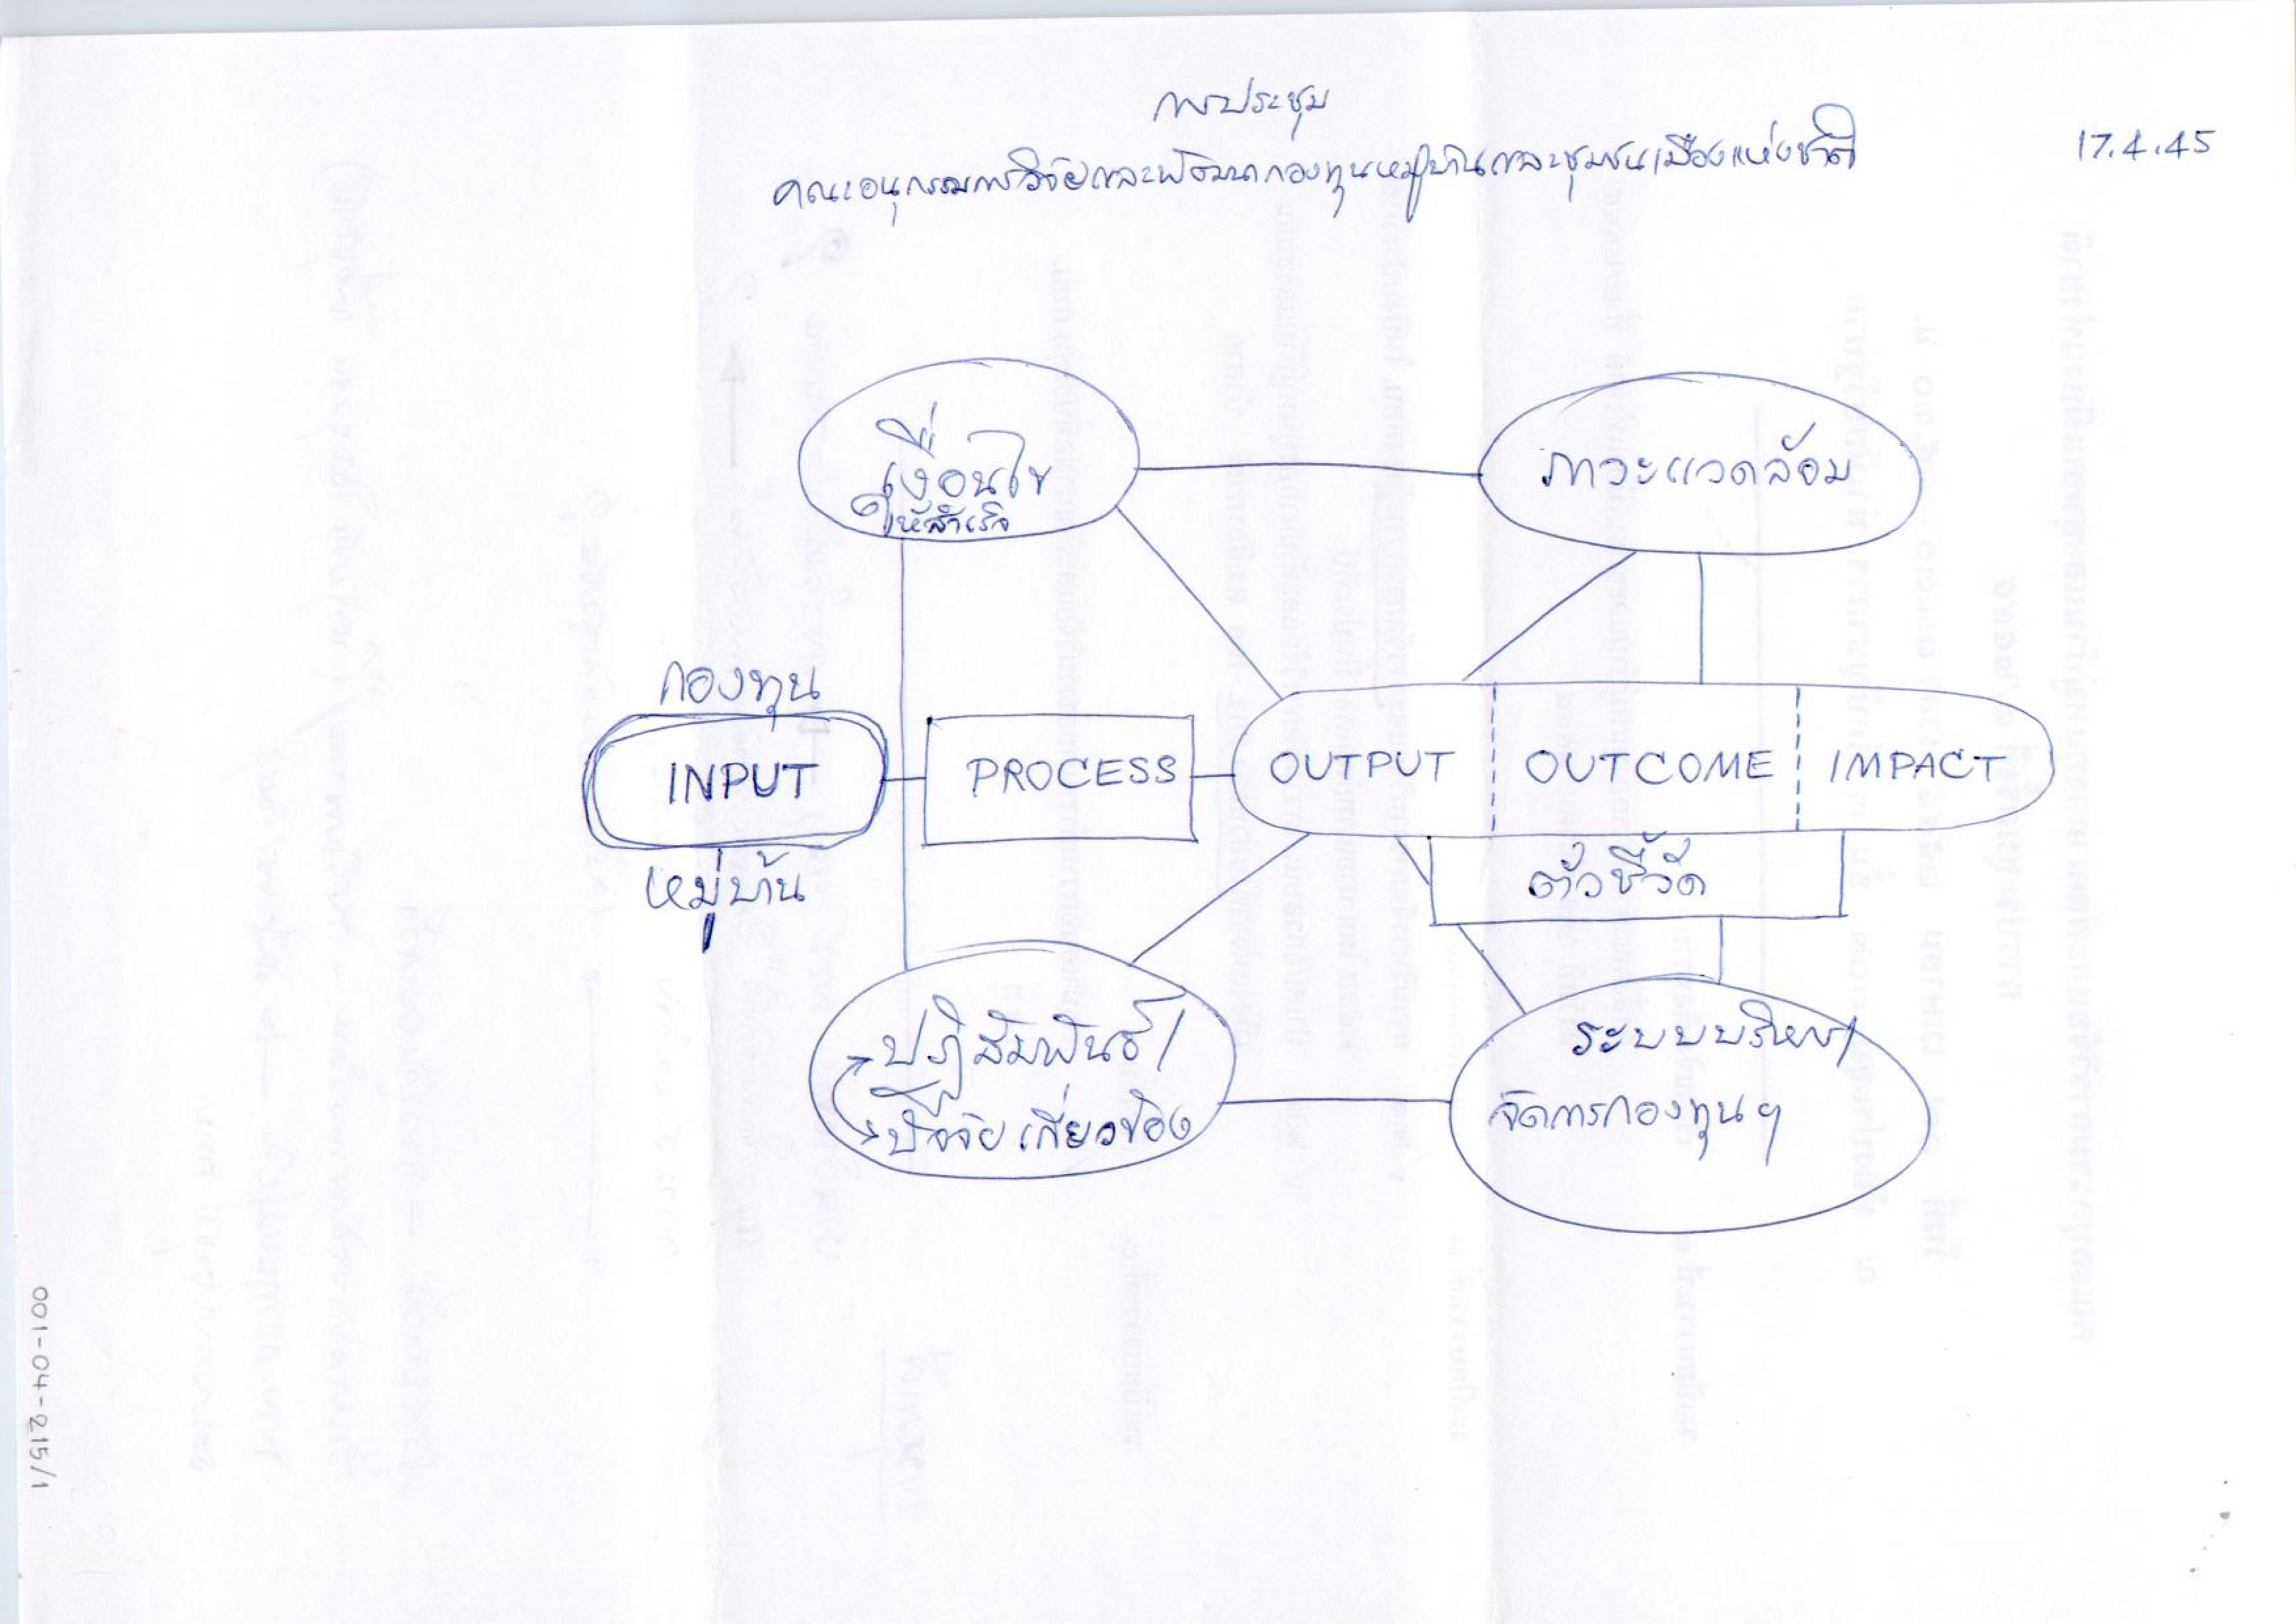 การประชุม
คณะอนุกรรมการวิจัยและพัฒนากองทุนหมู่บ้านและชุมชนเมืองแห่งชาติ
17.4.45
เงื่อนไข
ให้สำเร็จ
ภาวะแวดล้อม
กองทุน
INPUT
หมู่บ้าน
PROCESS
OUTPUT
OUTCOME
IMPACT
ตัวชี้วัด
ปฏิสัมพันธ์/
ปัจจัยเกี่ยวข้อง
ระบบบริหาร/
จัดการกองทุนฯ
001-04-215/1